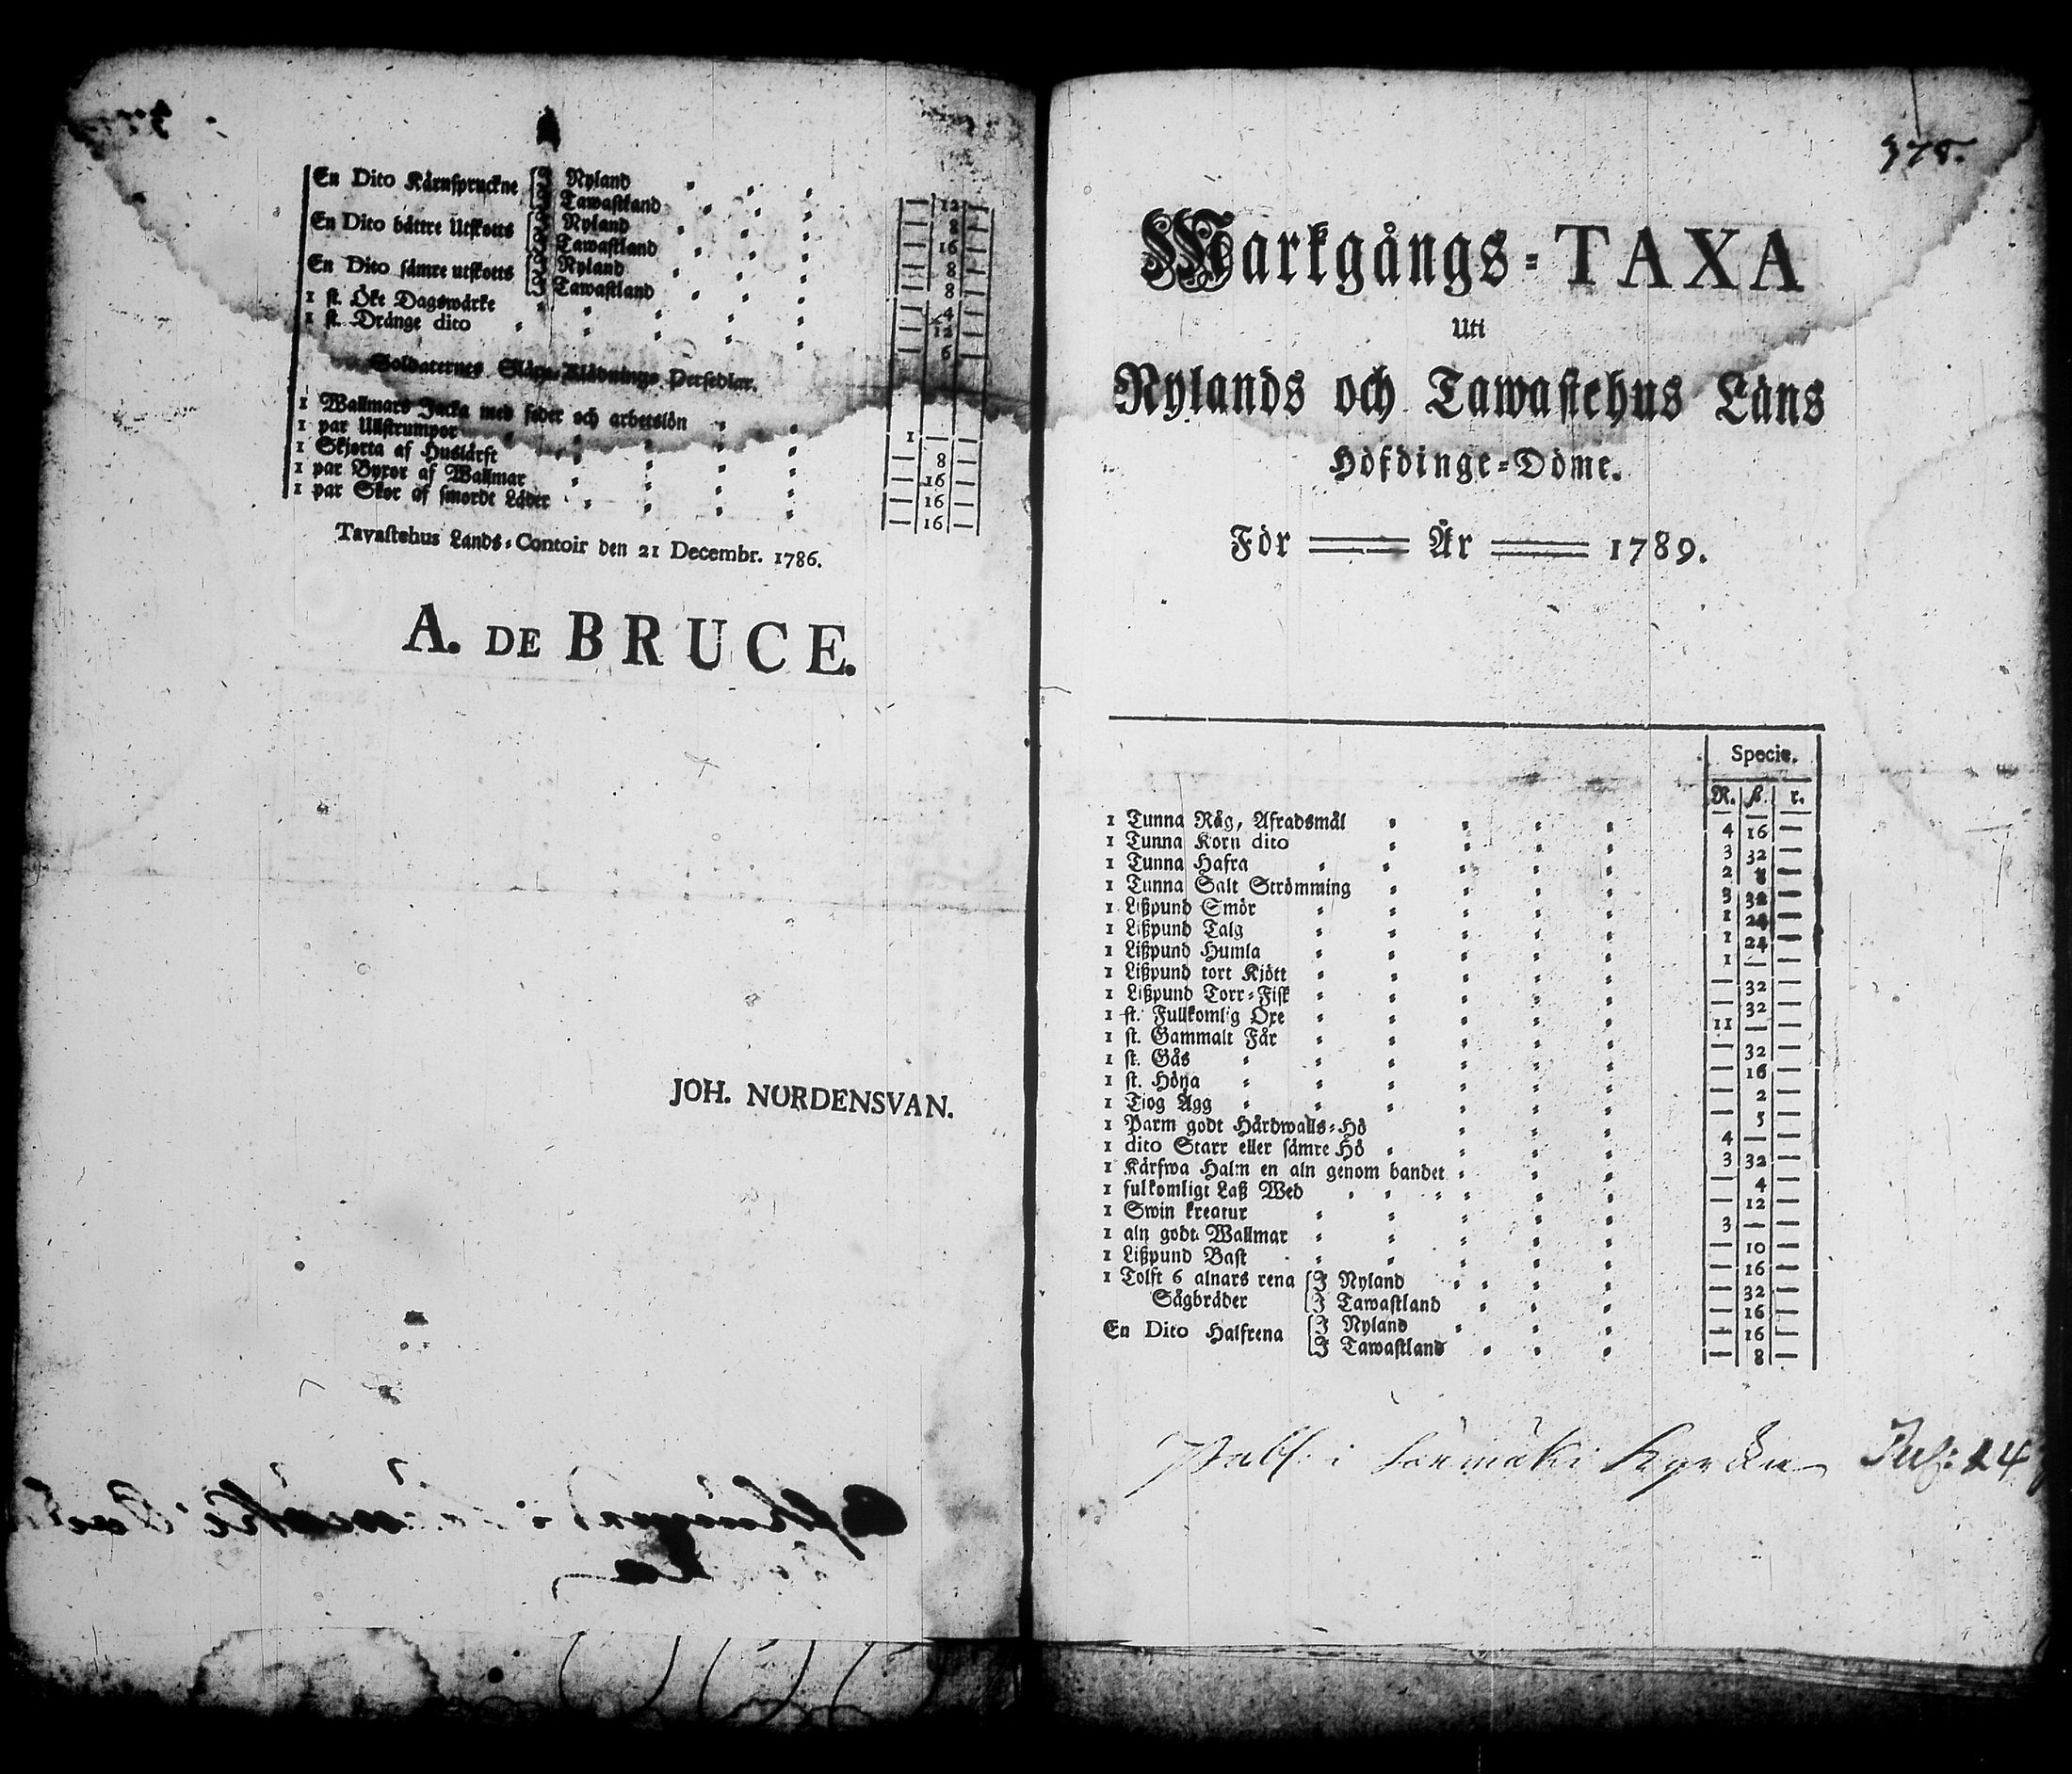 En Dito Kårnspruckne I Nyland — 12 —
I Tawastland — 8 —
En Dito båttre Utskotts I Nyland — 16 —
I Tawastland — 8 —
En Dito såmre utskotts I Nyland — 8 —
I Tawastland — 4 —
1 st. Öke Dagswårke — 12 —
1 st. Drånge dito — 6 —
Soldaternes Slåpe-Klådnings Persedlar.
1 Wallmars Jacka med foder och arbetslön 1 — —
1 par Ullstrumpor — 8 —
1 Skjorta af Huslårft — 16 —
1 par Byxor af Wallmar — 16 —
1 par Skor af smordt Låder — 16 —
Tavastehus Lands-Contoir den 21 Decembr. 1786.
A. DE BRUCE.
JOH. NORDENSVAN.
378.
Markgångs-TAXA
Uti
Nylands och Tawastehus Låns
Höfdinge-Döme.
För År 1789.
Specie.
R. ß. r.
1 Tunna Råg, Afradsmål 4 16 —
1 Tunna Korn dito 3 32 —
1 Tunna Hafra 2 8 —
1 Tunna Salt Strömming 3 32 —
1 Lißpund Smör 1 24 —
1 Lißpund Talg 1 24 —
1 Lißpund Humla 1 — —
1 Lißpund tort Kjött — 32 —
1 Lißpund Torr-Fisk — 32 —
1 st. Fullkomlig Oxe 11 — —
1 st. Gammalt Får — 32 —
1 st. Gås — 16 —
1 st. Höna — 2 —
1 Tjog Ågg — 5 —
1 Parm godt Hårdwalls-Hö 4 — —
1 dito Starr eller såmre Hö 3 32 —
1 Kårfwa Halm en aln genom bandet — 4 —
1 fulkomligt Laß Wed — 12 —
1 Swin kreatur 3 — —
1 aln godt Wallmar — 10 —
1 Lißpund Bast — 16 —
1 Tolft 6 alnars rena I Nyland — 32 —
Sågbråder I Tawastland — 16 —
En Dito Halfrena I Nyland — 16 —
I Tawastland — 8 —
Publ. i Kyrckia 24